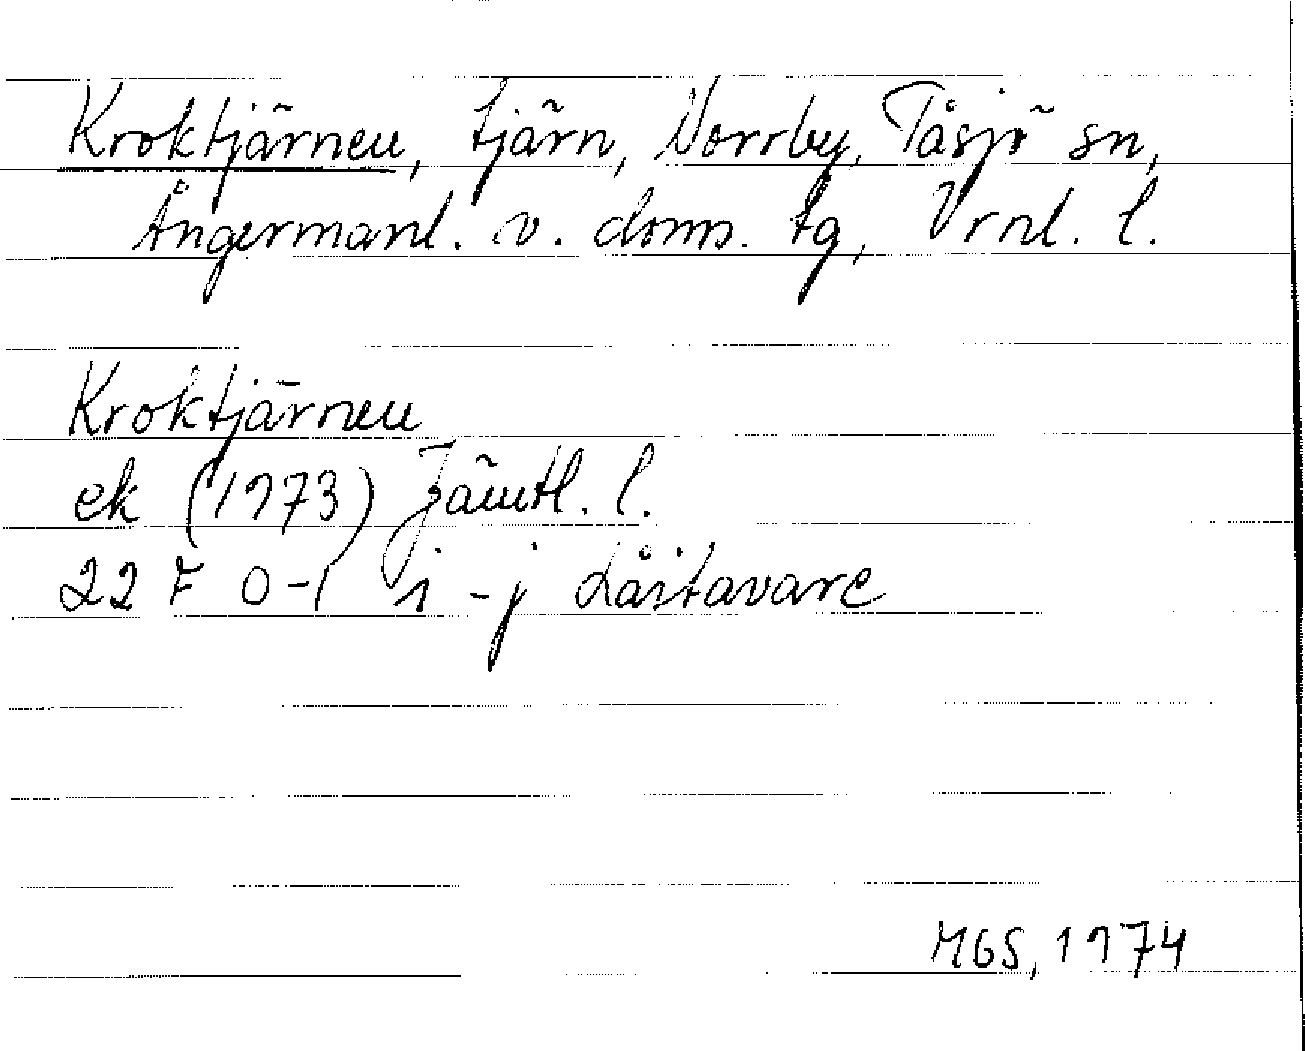 Kroktjärnen, tjärn, Norrby, Tåsjö sn,
Ångermanl. v. doms. tg, Vrnl. l.
Kroktjärnen
ek (1973) Jämtl. l.
22 F 0-1 i-j Låitavare
MGS, 1974